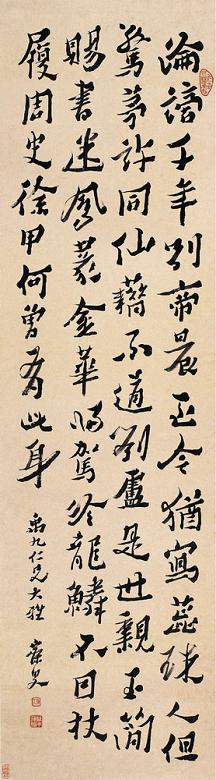 淪謫千年別帝晨至今猶寫蕊珠人但
驚茅許同仙藉不道劉盧是世親玉簡
賜書迷鳳篆金華歸駕冷龍鱗不因杖
履周史徐甲何曾有此身
禹九仁兄大雅 蝯叟